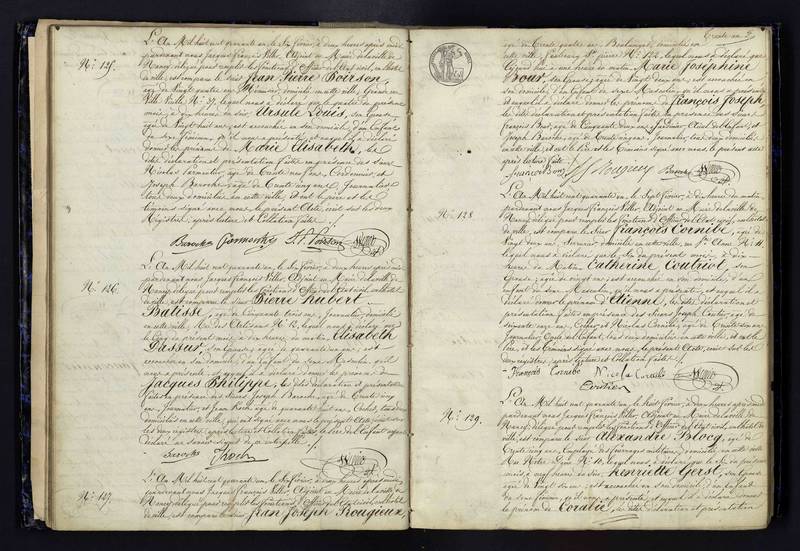 N.° 125.
L'An Mil huit cent quarante un, le six février, à deux heures après midi
pardevant nous Jacques François Villers, Adjoint au Maire de la ville de
Nancy, délégué pour remplir les fonctions d'Officier de l'Etat civil, en l'hôtel
de ville, est comparu le sieur Jean Pierre Poirson,
âgé de trente quatre ans, domicilié en cette ville, Grande rue
Ville Vieille N.° 37, lequel nous a déclaré que le quatre du présent
mois, à dix heures du soir, Ursule Louis, son épouse
âgée de vingt huit ans, est accouchée en son domicile, d'un Enfant
du sexe féminin, qu'il nous a présenté, et auquel il a déclaré
donner les prénoms de Marie Elisabeth, les
dites déclaration et présentation faites en présence des Sieurs
Nicolas Parmentier, âgé de trente neuf ans, Cordonnier, et
Joseph Baroche, âgé de trente cinq ans, Journalier
tous deux domiciliés en cette ville, et ont le père et les
témoins signé avec nous le présent Acte, inscrit sur les deux
Registres, après lecture et Collation faite.
Baroche Parmentier J. P. Poirson
N.° 126.
L'An Mil huit cent quarante un, le six février, à deux heures après midi
pardevant nous Jacques François Villers, Adjoint au Maire de la ville de
Nancy, délégué pour remplir les fonctions d'Officier de l'Etat civil, en l'hôtel
de ville, est comparu le sieur Pierre Hubert
Batisse, âgé de Cinquante trois ans, Journalier, domicilié
en cette ville, Rue des Artisans N.° 12, lequel nous a déclaré que
le cinq du présent mois, à dix heures du matin, Elisabeth
Dassar, son épouse, âgée de quarante un ans, est
accouchée en son domicile, d'un Enfant du sexe Masculin, qu'il
nous a présenté, et auquel il a déclaré donner les prénoms de
Jacques Philippe, les dites déclaration et présentation
faites en présence des Sieurs Joseph Baroche, âgé de trente cinq
ans, Journalier, et Jean Koch, âgé de quarante huit ans, Cocher, tous deux
domiciliés en cette ville, qui ont signé avec nous le présent Acte inscrit sur
les deux registres, après lecture et Collation faite, le père de l'Enfant ayant
déclaré ne savoir signer de ce interpellé.
Baroche J Koch
N.° 127.
L'An Mil huit cent quarante un, le six février, à deux heures après midi,
pardevant nous Jacques François Villers, Adjoint au Maire de la ville de
Nancy, délégué pour remplir les fonctions d'Officier de l'Etat civil, en l'hôtel
de ville, est comparu le sieur Jean Joseph Rougieux,
âgé de trente quatre ans, Boulanger, domicilié en
cette ville, Faubourg St. Pierre N.° 178, lequel nous a déclaré que
à une heure du matin, Marie Joséphine
Bour, son épouse, âgée de vingt deux ans, est accouchée en
son domicile, d'un Enfant du sexe Masculin, qu'il nous a présenté
et auquel il a déclaré donner les prénoms de François Joseph
les dites déclaration et présentation faites en présence des Sieurs
François Bour, âgé de Cinquante deux ans, Jardinier, Aïeul de l'Enfant, et
Joseph Baroche, âgé de trente cinq ans, Journalier, tous deux domiciliés
en cette ville, et ont le Père et les témoins signé avec nous, le présent acte
après lecture faite.
francois Bour J J Rougieux Baroche
N.° 128
L'An Mil huit cent quarante un, le Sept février, à dix heures du matin,
pardevant nous Jacques François Villers, Adjoint au Maire de la ville de
Nancy, délégué pour remplir les fonctions d'Officier de l'Etat civil, en l'hôtel
de ville, est comparu le Sieur François Cornibé, âgé de
vingt deux ans, Serrurier, domicilié en cette ville, rue Ste. Anne N.° 11,
lequel nous a déclaré, que le six du présent mois, à dix
heures du Matin, Catherine Coutriot, son
Epouse, âgée de vingt un ans, est accouchée en son domicile, d'un
Enfant du sexe Masculin, qu'il nous a présenté, et auquel il a
déclaré donner le prénom d'Etienne, les dites déclaration et
présentation faites en présence des Sieurs Joseph
soixante ans, Cocher, et Nicolas Cornibé, âgé de
Journalier, Oncle de l'Enfant, tous deux domiciliés en cette ville, et ont le
Père, et les témoins signé avec nous, le présent Acte, inscrit sur les
deux registres, après lecture et Collation faite.
François Cornibé Nicolas Cornibé
N.° 129.
L'An Mil huit cent quarante un, le huit février, à deux heures après midi
pardevant nous Jacques François Villers, Adjoint au Maire de la ville de
Nancy, délégué pour remplir les fonctions d'Officier de l'Etat civil, en l'hôtel de
ville, est comparu le sieur Alexandre Blocq, âgé de
trente cinq ans, Employé des fourrages militaires, domicilié en cette ville
N.° 11, lequel nous a déclaré que le six du présent
mois, à neuf heures du soir, Henriette Gerst, son épouse
âgée de vingt six ans, est accouchée en son domicile, d'un Enfant
du sexe féminin, qu'il nous a présenté, et auquel il a déclaré donner
le prénom de Coralie, les dites déclaration et présentation